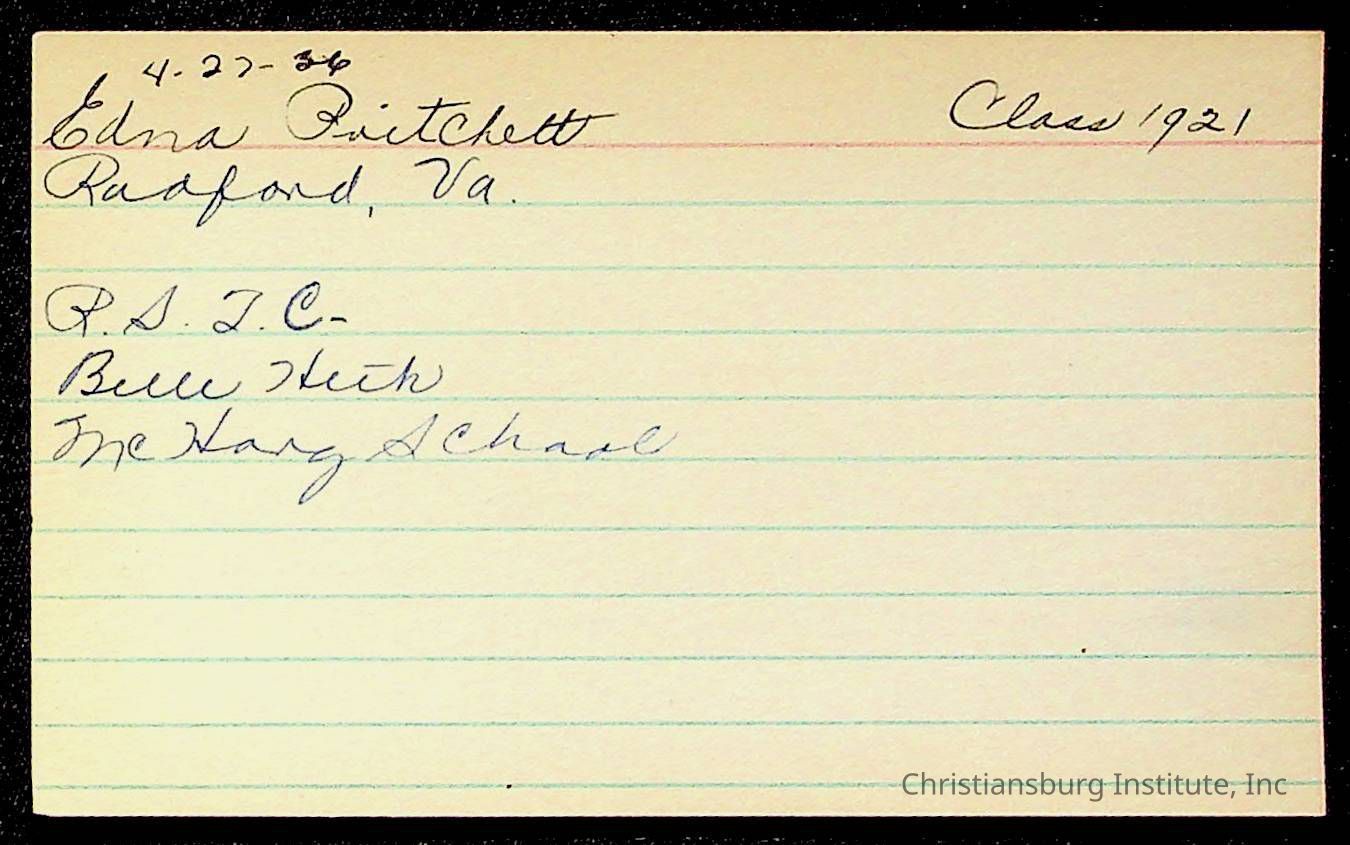 4-27-36
Edna Pritchett Class 1921
Radford, Va.
R.S.T.C-
Belle Heth
McHarg School
Christiansburg Institute, Inc